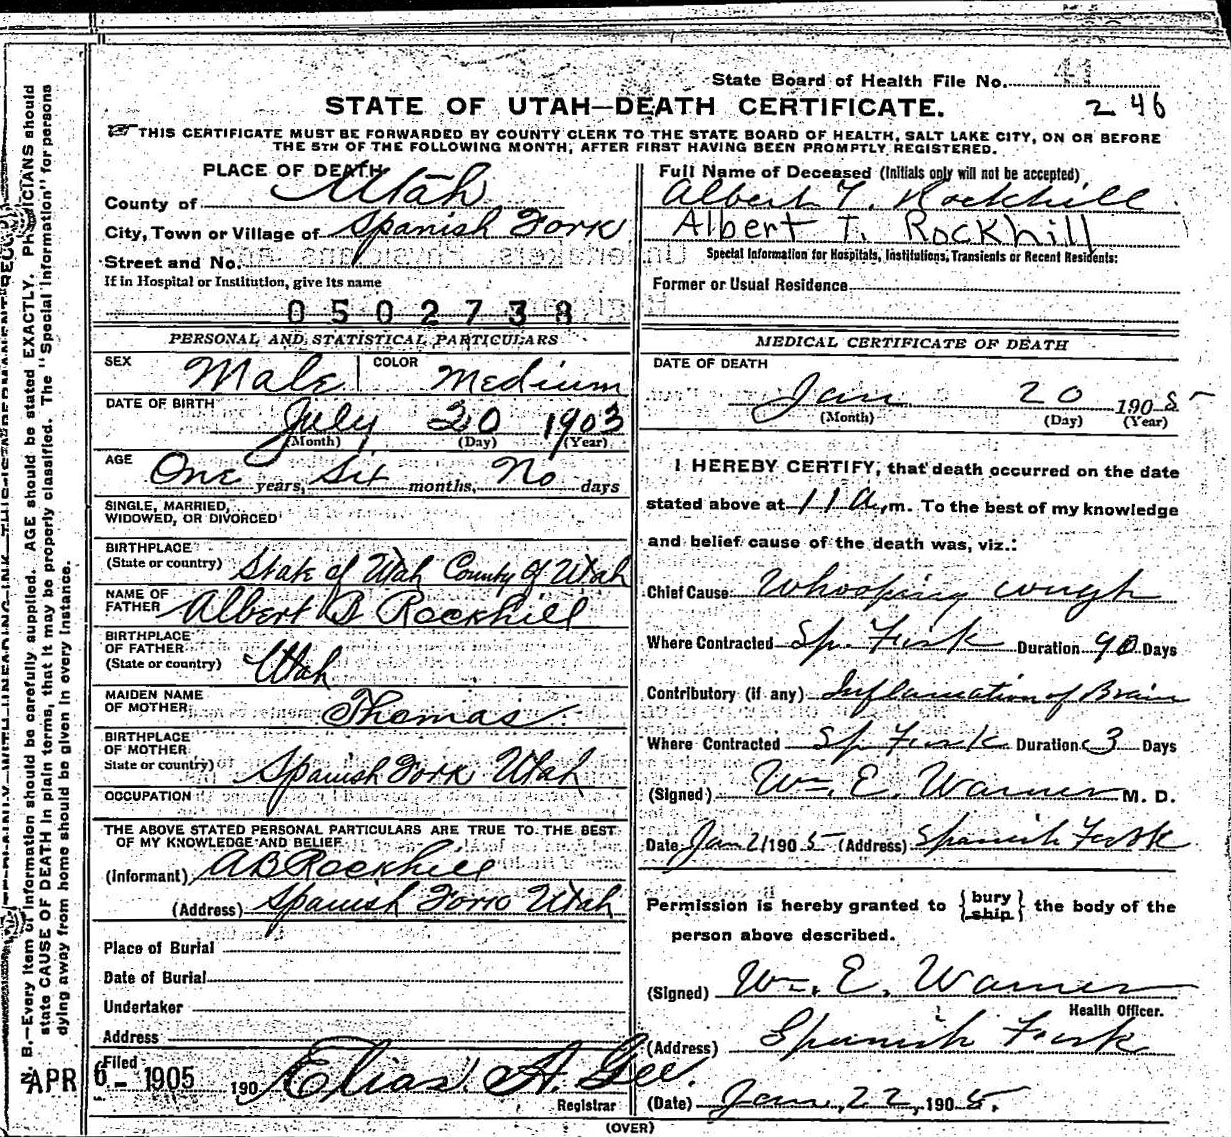 State Board of Health File No. 41
STATE OF UTAH—DEATH CERTIFICATE.
2 46
THIS CERTIFICATE MUST BE FORWARDED BY COUNTY CLERK TO THE STATE BOARD OF HEALTH, SALT LAKE CITY, ON OR BEFORE
THE 5TH OF THE FOLLOWING MONTH, AFTER FIRST HAVING BEEN PROMPTLY REGISTERED.
PLACE OF DEATH
County of Utah
City, Town or Village of Spanish Fork
Street and No.
If in Hospital or Institution, give its name
0502738
Full Name of Deceased (Initials only will not be accepted)
Albert T. Rockhill
Albert T. Rockhill
Special Information for Hospitals, Institutions, Transients or Recent Residents:
Former or Usual Residence
PERSONAL AND STATISTICAL PARTICULARS
SEX Male COLOR Medium
DATE OF BIRTH
July 20 1903
(Month) (Day) (Year)
AGE One years, Six months, No days
SINGLE, MARRIED,
WIDOWED, OR DIVORCED
BIRTHPLACE
(State or country) State of Utah County of Utah
NAME OF
FATHER Albert B Rockhill
BIRTHPLACE
OF FATHER
(State or country) Utah
MAIDEN NAME
OF MOTHER Thomas
BIRTHPLACE
OF MOTHER
State or country) Spanish Fork Utah
OCCUPATION
THE ABOVE STATED PERSONAL PARTICULARS ARE TRUE TO THE BEST
OF MY KNOWLEDGE AND BELIEF
(Informant) AB Rockhill
(Address) Spanish Fork Utah
Place of Burial
Date of Burial
Undertaker
Address
Filed
APR 6- 1905 190 Elias A. Gee.
Registrar
MEDICAL CERTIFICATE OF DEATH
DATE OF DEATH
Jan 20 1905
(Month) (Day) (Year)
I HEREBY CERTIFY, that death occurred on the date
stated above at 11 a.m. To the best of my knowledge
and belief cause of the death was, viz.:
Chief Cause Whooping cough
Where Contracted Sp. Fork Duration 90 Days
Contributory (if any) Inflamation of Brain
Where Contracted Sp Fork Duration 3 Days
(Signed) Wm. E. Warner M. D.
Date Jan 21 1905 (Address) Spanish Fork
Permission is hereby granted to {bury ship} the body of the
person above described.
(Signed) Wm. E. Warner
Health Officer.
(Address) Spanish Fork
(Date) Jan. 22, 1905.
(OVER)
B.—Every item of information should be carefully supplied. AGE should be stated EXACTLY. PHYSICIANS should
state CAUSE OF DEATH in plain terms, that it may be properly classified. The "Special Information" for persons
dying away from home should be given in every instance.